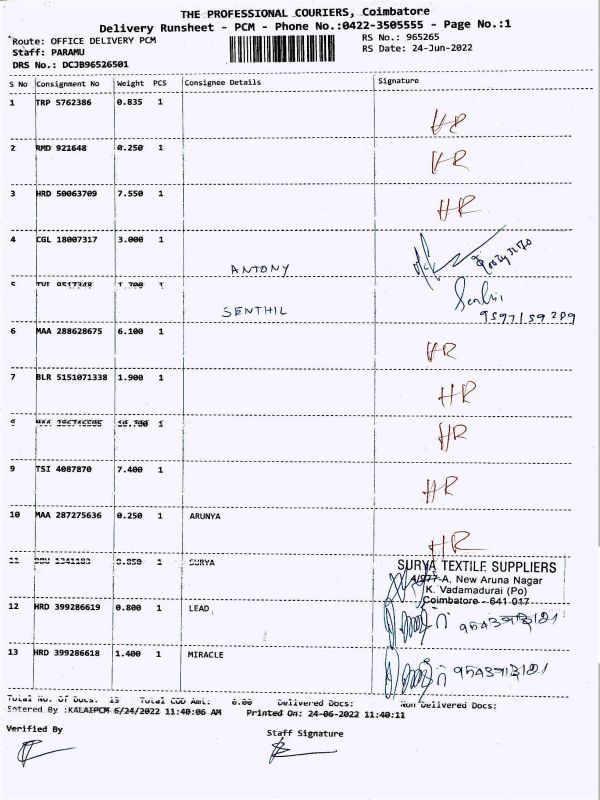 THE PROFESSIONAL COURIERS, Coimbatore
Delivery Runsheet - PCM - Phone No.:0422-3505555 - Page No.:1
Route: OFFICE DELIVERY PCM
RS No.: 965265
Staff: PARAMU
RS Date: 24-Jun-2022
DRS No.: DCJB96526501
S No Consignment No Weight PCS Consignee Details Signature
1 TRP 5762386 0.835 1
HR
2 RMD 921648 0.250 1
HR
3 HRD 50063709 7.550 1
HR
4 CGL 18007317 3.000 1
ANTONY
5 1
SENTHIL
Senthil
6 MAA 288628675 6.100 1
HR
7 BLR 5151071338 1.900 1
HR
1
HR
9 TSI 4087870 7.400 1
HR
10 MAA 287275636 0.250 1 ARUNYA
HR
11 1 SURYA
SURYA TEXTILE SUPPLIERS
4/977-A, New Aruna Nagar
K. Vadamadurai (Po)
Coimbatore - 641 017
12 HRD 399286619 0.800 1 LEAD
13 HRD 399286618 1.400 1 MIRACLE
Total No. Of Docs. 13 Total COD Amt: 0.00 Delivered Docs: Non Delivered Docs:
Entered By :KALAIPCM 6/24/2022 11:40:06 AM Printed On: 24-06-2022 11:40:11
Verified By
Staff Signature